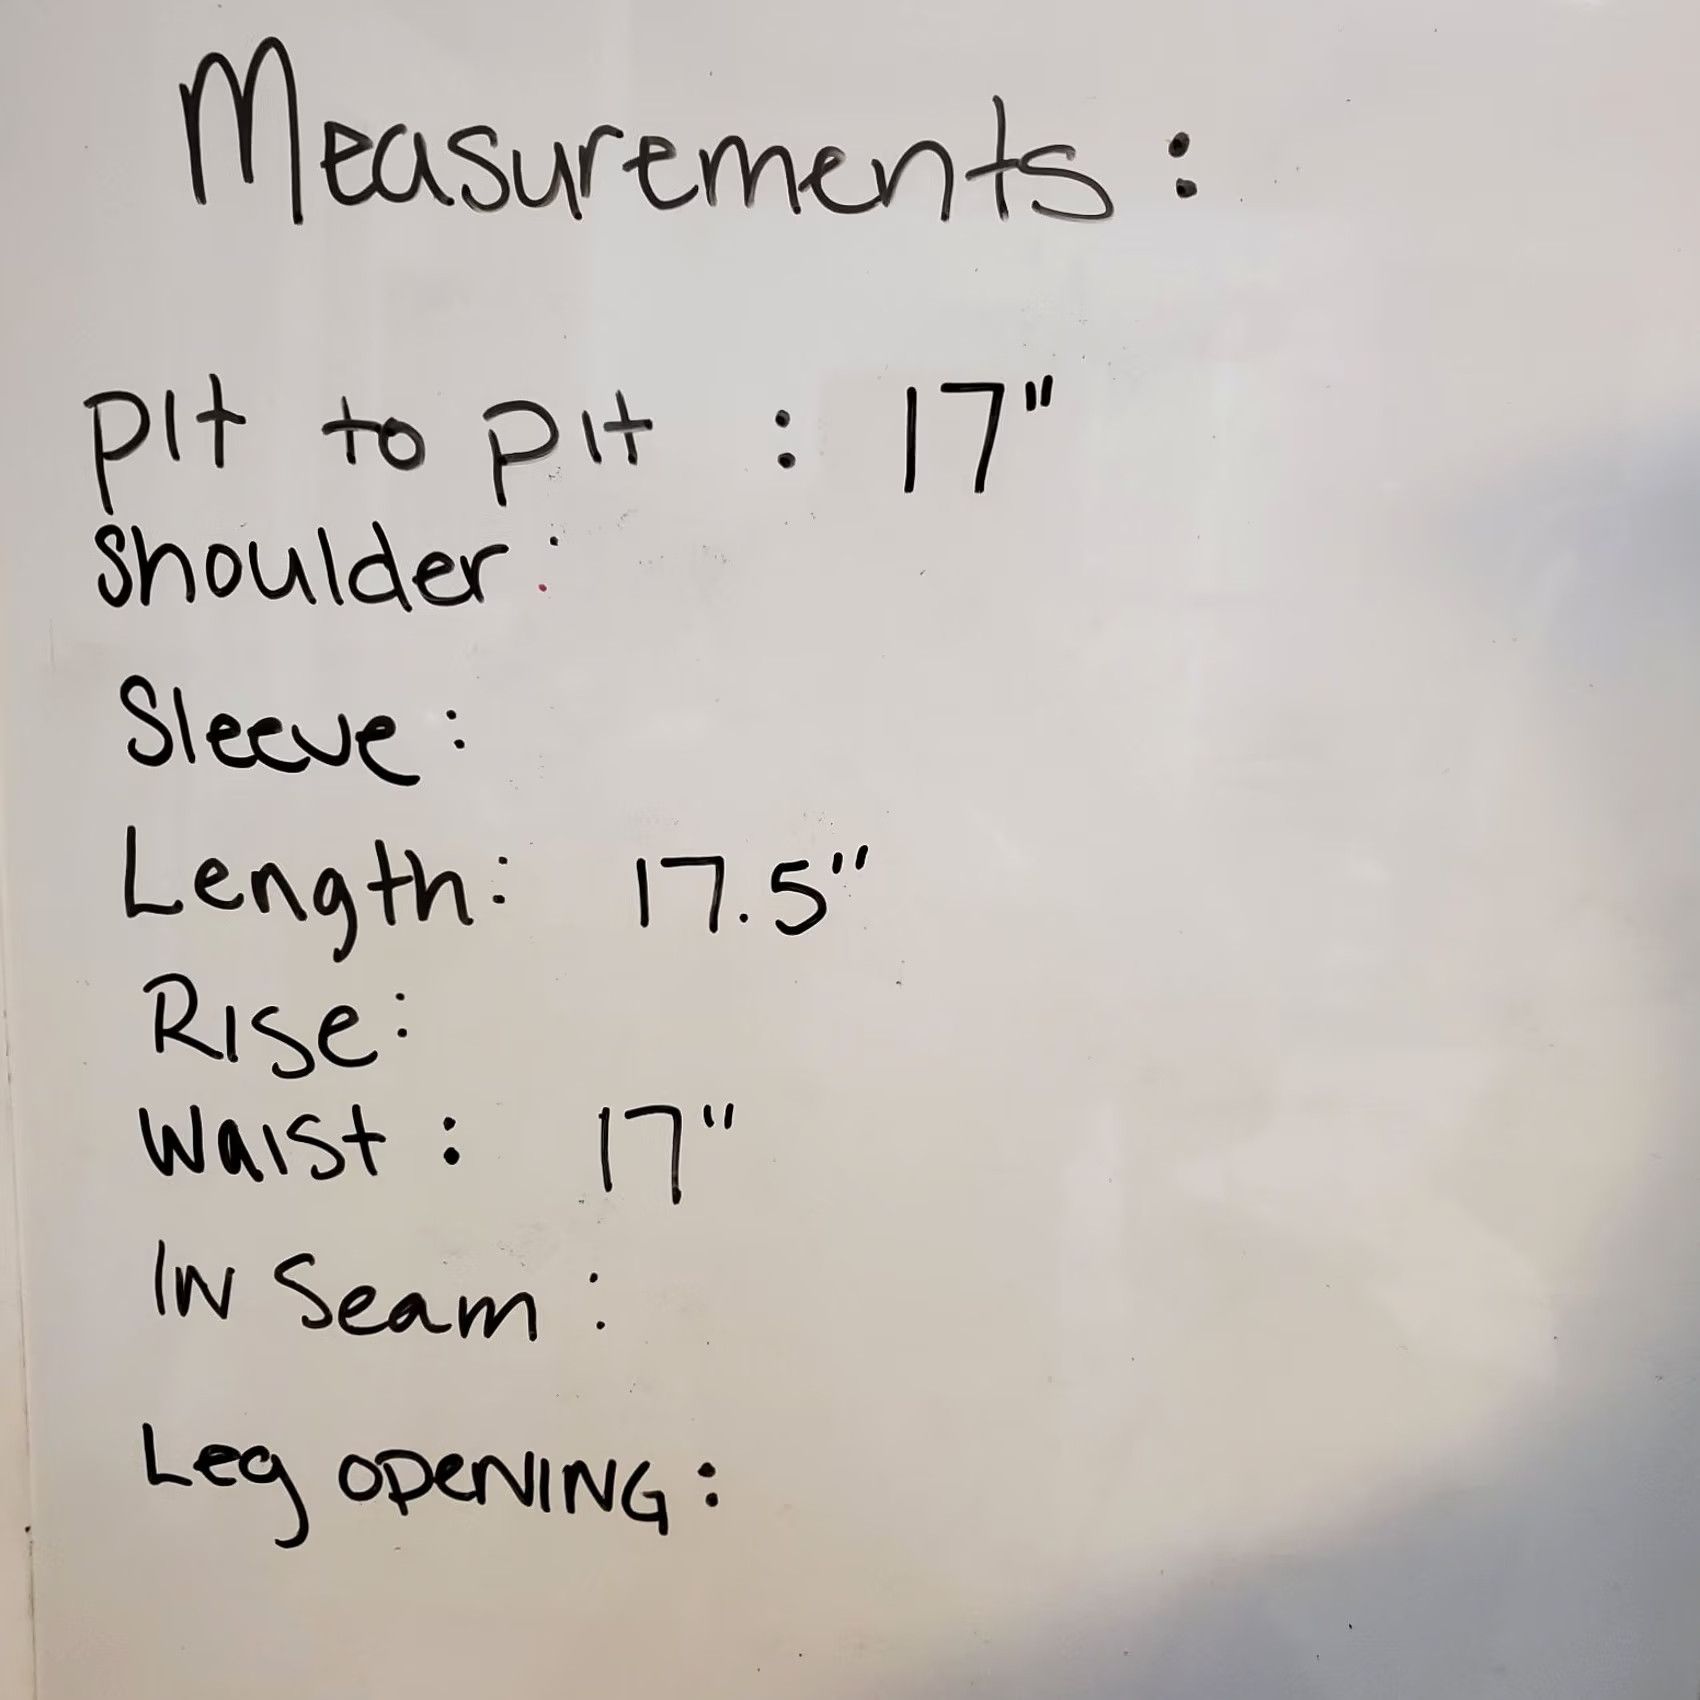 Measurements:
pit to pit : 17"
shoulder:
Sleeve:
Length: 17.5"
Rise:
Waist: 17"
In Seam:
Leg OPENING: